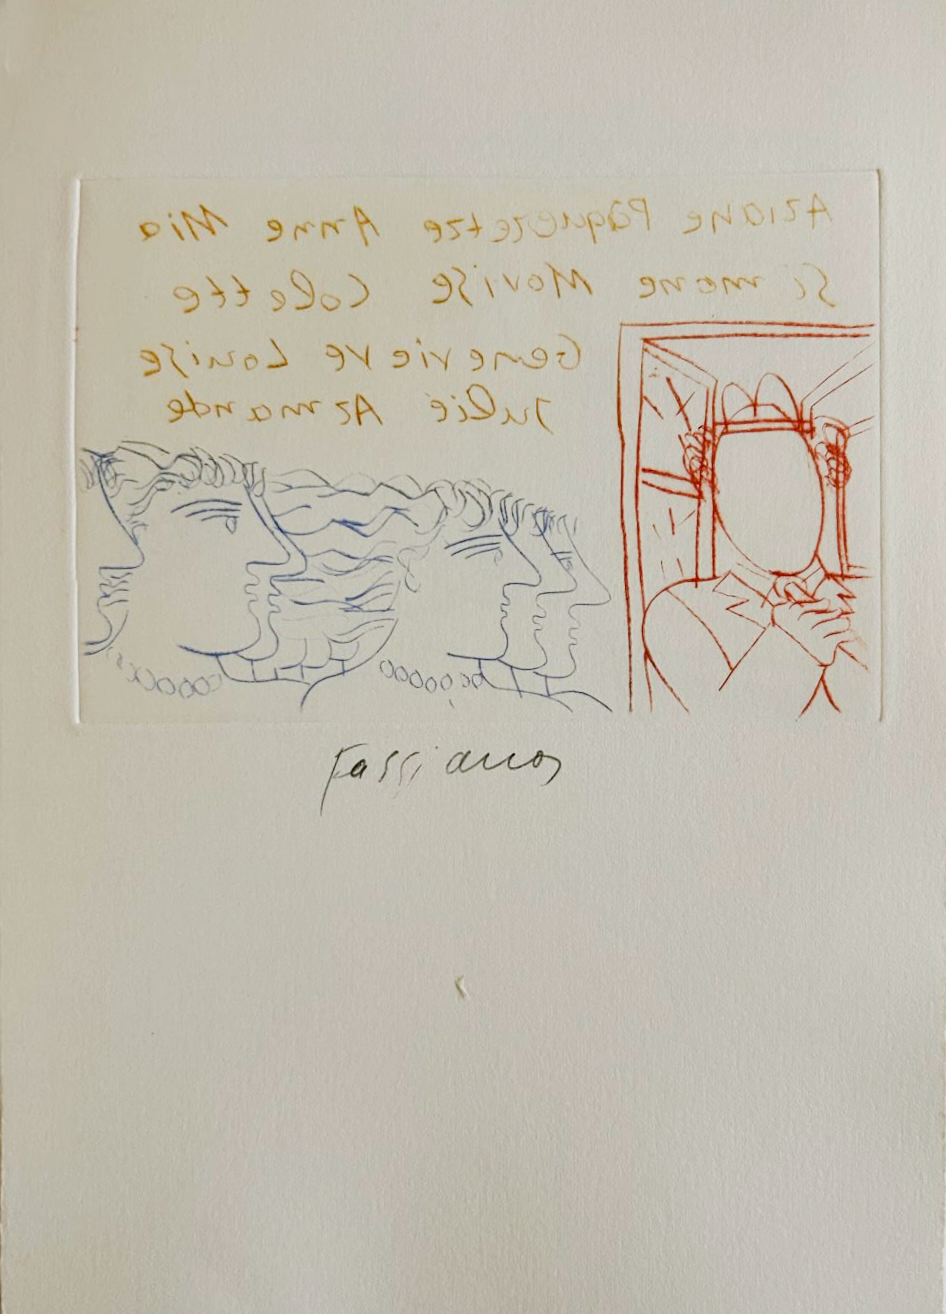 Ariane Pâquerette Anne Mia
Simone Morise Colette
Genevieve Louise
Julie Armande
Fassianos